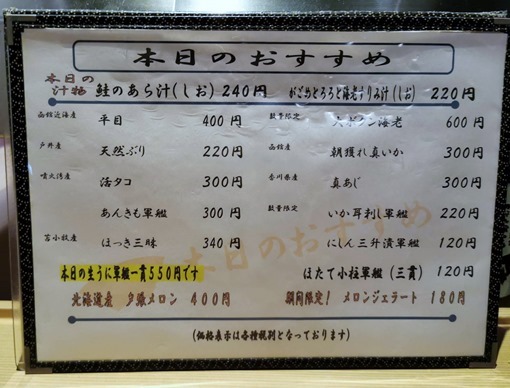 本日のおすすめ
本日の汁物 鮭のあら汁(しお) 240円 がごめとろろと海老すり み汁(しお) 220円
函館近海産 平目 400円 数量限定 大ボタン海老 600円
戸井産 天然ぶり 220円 函館産 朝獲れ真いか 300円
噴火湾産 活タコ 300円 香川県産 真あじ 300円
あんきも軍艦 300円 数量限定 いか耳刺し軍艦 220円
苫小牧産 ほっき三昧 340円 にしん三升漬軍艦 120円
本日の生うに軍艦一貫550円です ほたて小柱軍艦(三貫) 120円
北海道産 夕張メロン 400円 期間限定! メロンジェラート 180円
(価格表示は各種税別となっております)
本日のおすすめ